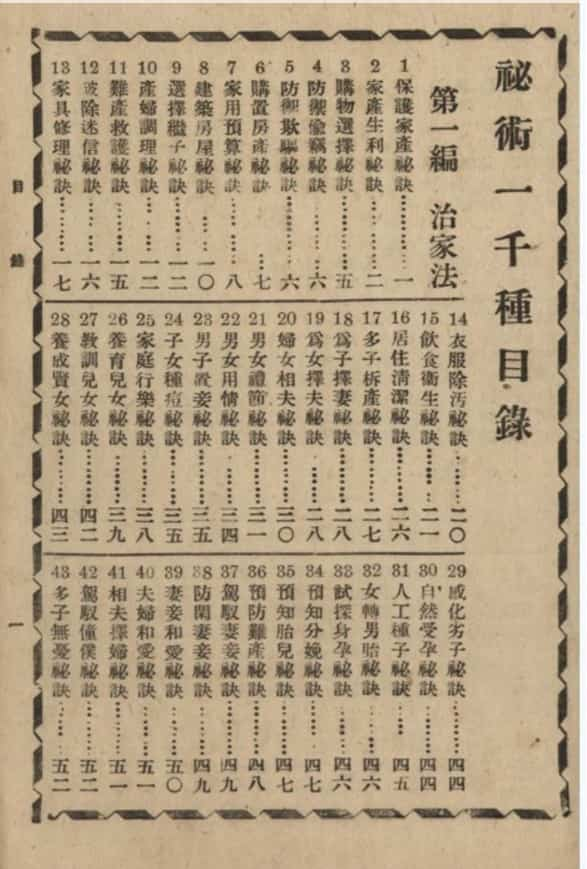 祕術一千種目錄
第一編 治家法
1 保護家產祕訣………一
2 家產生利祕訣………二
3 購物選擇祕訣………五
4 防禦偷竊祕訣………六
5 防禦欺騙祕訣………六
6 購置房產祕訣………七
7 家用預算祕訣………八
8 建築房屋祕訣………一〇
9 選擇子祕訣………一二
10 產婦調理祕訣………一二
11 難產救護祕訣………一五
12 破除迷信祕訣………一六
13 家具修理祕訣………一七
14 衣服除污祕訣………二〇
15 飲食衛生祕訣………二一
16 居住清潔祕訣………二六
17 多子析產祕訣………二七
18 爲子擇妻祕訣………二八
19 爲女擇夫祕訣………二八
20 婦女相夫祕訣………三〇
21 男女禮節祕訣………三一
22 男女用情祕訣………三四
23 男子置妾祕訣………三五
24 子女種痘祕訣………三五
25 家庭行樂祕訣………三八
26 養育兒女祕訣………三九
27 教訓兒女祕訣………四二
28 養成賢女祕訣………四三
29 感化劣子祕訣………四四
30 自然受孕祕訣………四四
31 人工種子祕訣………四五
32 女轉男胎祕訣………四六
33 試探身孕祕訣………四六
34 預知分娩祕訣………四七
35 預知胎兒祕訣………四七
36 預防難產祕訣………四八
37 駕馭妻妾祕訣………四九
38 防閑妻妾祕訣………四九
39 妻妾和愛祕訣………五〇
40 夫婦和愛祕訣………五一
41 相夫擇婦祕訣………五一
42 駕馭僮僕祕訣………五二
43 多子無憂祕訣………五二
目錄
一